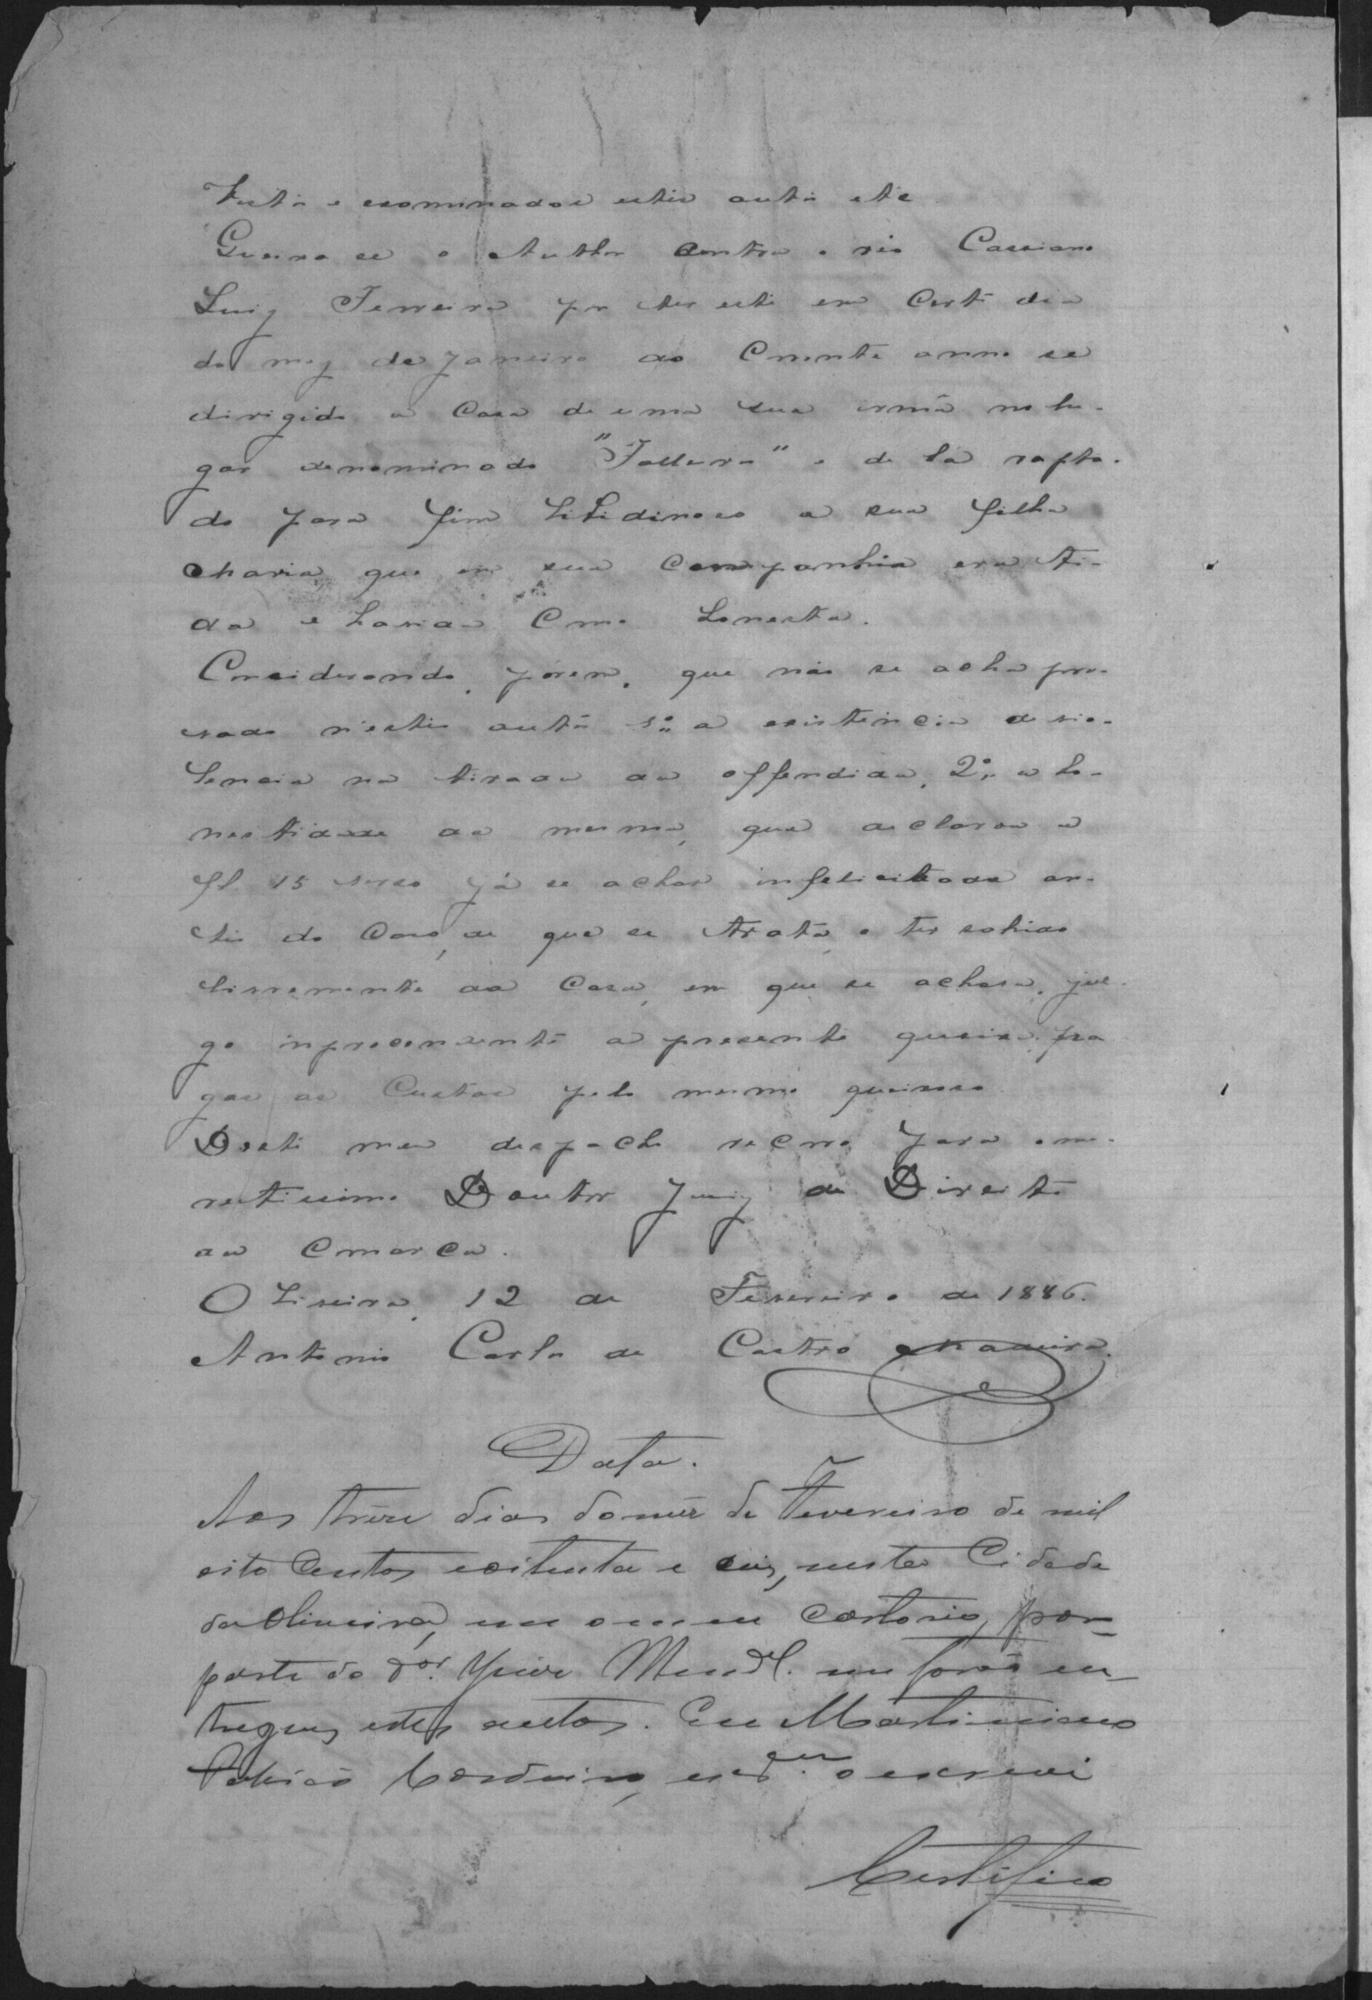 Vistos e examinados estes autos etc
Queixa-se o Author contra o réo Cassiano
Luiz Ferreira por ter este em certo dia
do mez de Janeiro do corrente anno se
dirigido a casa de uma sua irmã no lu-
gar denominado " " e de lá rapta-
do para fim libidinoso a sua filha
Maria que em sua companhia era ti-
da e havida como honesta.
Considerando, porem, que não se acha pro-
vado n'estes autos 1º a existencia de vio-
lencia na tirada da offendida, 2º a ho-
nestidade da mesma, que declarou a
fl 15 verso já se achar infelicitada an-
tes do caso, de que se trata, e ter sahido
livremente da casa, em que se achava, jul-
go improcedente a presente queixa, pa
gas as custas pelo mesmo queixoso
D'este meu despacho recorro para o me-
retissimo Doutor Juiz de Direito
da comarca.
Oliveira, 12 de Fevereiro de 1886.
Antonio Carlos de Castro Madeira.
Data.
Aos treze dias do mez de Fevereiro de mil
oito centos e oitenta e seis, nesta Cidade
da Oliveira, em o meu cartorio, por
parte do Dor. Juiz Mun.al me forão en-
tregues estes autos. Eu Martiniano
Cordeiro, escr.am o escrevi
Certifico